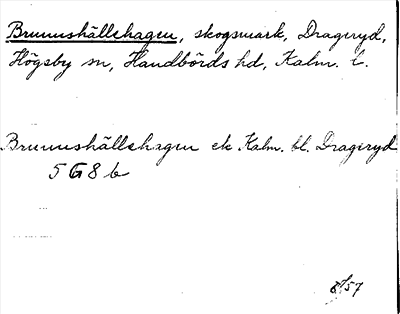 Brunnshällshagen, skogsmark, Drageryd,
Högsby sn, Handbörds hd, Kalm. l.
Brunnshällshagen ek Kalm. bl. Drageryd
5 G 8 b